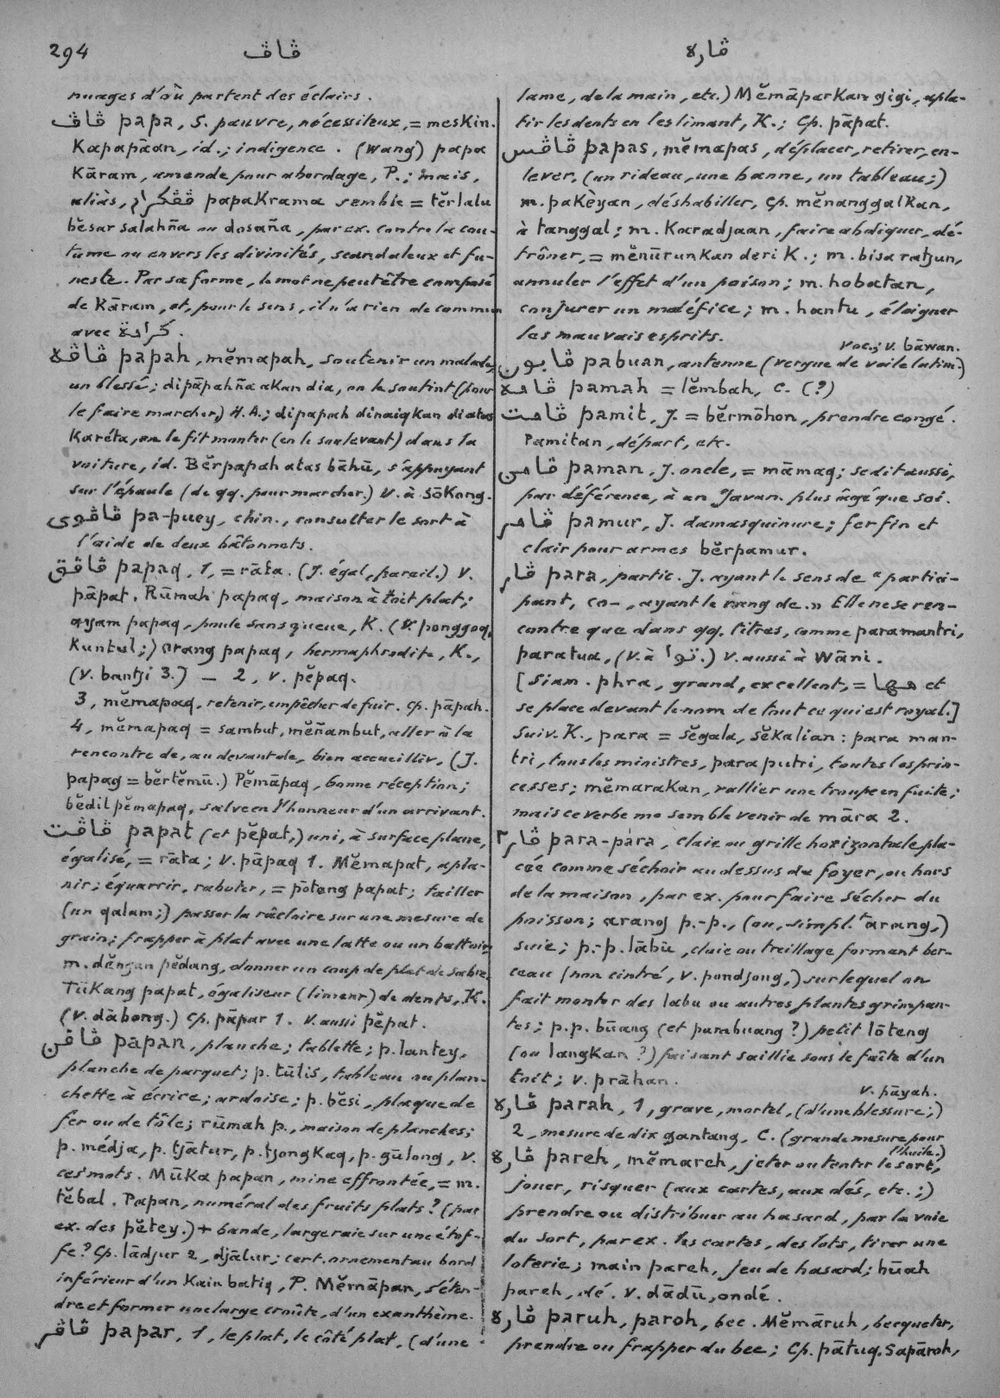 294 ڤاڤ ڤاره
nuages d'où partent des éclairs.
ڤاڤ papa, S. pauvre, nécessiteux, = meskin.
Kapapāan, id.; indigence. (Wang) papa
Kāram, amende pour abordage, P.; mais,
aliàs, ڤڤكرام papaKrama semble = tĕrlalu
bĕsar salahña ou dosaña, par ex. contre la cou-
tume ou envers les divinités, scandaleux et fu-
neste. Par sa forme, le mot ne peut être composé
de Kāram, et, pour le sens, il n'a rien de commun
avec كرامة.
ڤاڤه papah, mĕmapah, soutenir un malade,
un blessé; dipāpahña akan dia, on le soutint (pour
le faire marcher,) H.A.; dipapah dinaiqkan diatas
Karéta, on le fit monter (en le soulevant) dans la
voiture, id. Bĕrpapah atas bāhū, s'appuyant
sur l'épaule (de qq. pour marcher.) V. à sōKong.
ڤاڤوي pa-puey, chin., consulter le sort à
l'aide de deux bâtonnets.
ڤاڤق papaq, 1, = rāta. (J. égal, pareil.) V.
pāpat. Rūmah papaq, maison à toit plat;
ayam papaq, poule sans queue, K. (& ponggoq,
Kuntul;) orang papaq, hermaphrodite, K.,
(V. bantji 3.) — 2, v. pĕpaq.
3, mĕmapaq, retenir, empêcher de fuir. Cp. pāpah.
4, mĕmapaq = sambut, mĕñambut, aller à la
rencontre de, au devant de, bien accueillir, (J.
papag = bĕrtĕmū.) Pĕmāpaq, bonne réception;
bĕdil pĕmapaq, salve en l'honneur d'un arrivant.
ڤاڤت papat (et pĕpat,) uni, à surface plane,
égalisé, = rāta; v. pāpaq 1. Mĕmapat, apla-
nir; équarrir, raboter, = pōtong papat; tailler
(un qalam;) passer la râcloire sur une mesure de
grain; frapper à plat avec une latte ou un battoir,
m. dĕngan pĕdang, donner un coup de plat de sabre.
TūKang papat, égaliseur (limeur) de dents, K.
(V. dābong.) Cp. pāpar 1. V. aussi pĕpat.
ڤاڤن pāpan, planche; tablette; p. lantey,
planche de parquet; p. tūlis, tableau ou plan-
chette à écrire; ardoise; p. bĕsi, plaque de
fer ou de tôle; rūmah p., maison de planches;
p. médja, p. tjātur, p. tjongKaq, p. gūlong, v.
ces mots. MūKa papan, mine effrontée, = m.
tĕbal. Papan, numéral des fruits plats? (par
ex. des pĕtey.) + bande, large raie sur une étof-
fe? Cp. lādjur 2, djālur; cert. ornement au bord
inférieur d'un Kain batiq, P. Mĕmāpan, s'éten-
dre et former une large croûte, d'un exanthème.
ڤاڤر papar, 1, le plat, le côté plat, (d'une
lame, de la main, etc.) MĕmāparKan gigi, apla-
tir les dents en les limant, K.; Cp. pāpat.
ڤاڤس papas, mĕmapas, déplacer, retirer, en-
lever, (un rideau, une banne, un tableau;)
m. paKèyan, déshabiller, Cp. mĕnanggalKan,
à tanggal; m. Karadjaan, faire abdiquer, dé-
trôner, = mĕnūrunKan deri K.; m. bisa ratjun,
annuler l'effet d'un poison; m. hobatan,
conjurer un maléfice; m. hantu, éloigner
les mauvais esprits.
voc.; v. bāwan.
ڤابون pabuan, antenne (vergue de voile latine.)
ڤامه pamah = lĕmbah, C. (?)
ڤامت pamit, J. = bĕrmōhon, prendre congé.
Pamitan, départ, etc.
ڤامن paman, J. oncle, = māmaq; se dit aussi,
par déférence, à un Javan. plus âgé que soi.
ڤامر pamur, J. damasquinure; fer fin et
clair pour armes bĕrpamur.
ڤار para, partic. J. ayant le sens de "partici-
pant, co-, ayant le rang de." Elle ne se ren-
contre que dans qq. titres, comme paramantri,
paratua, (V. à توا.) V. aussi à Wāni.
[Siam. phra, grand, excellent, = مها et
se place devant le nom de tout ce qui est royal.]
Suiv. K., para = sĕgala, sĕkalian: para man-
tri, tous les ministres, para putri, toutes les prin-
cesses; mĕmaraKan, rallier une troupe en fuite;
mais ce verbe me semble venir de māra 2.
ڤار٢ para-pára, claie ou grille horizontale pla-
cée comme séchoir au dessus du foyer, ou hors
de la maison, par ex. pour faire sécher du
poisson; arang p.-p., (ou, simplt arang,)
suie; p.-p. lābū, claie ou treillage formant ber-
ceau (non cintré, v. pondjong,) sur lequel on
fait monter des labu ou autres plantes grimpan-
tes; p.p. būang (et pambuang?) petit lōteng
(ou langKan?) faisant saillie sous le faîte d'un
toit; v. prāhan.
v. pāyah.
ڤاره parah, 1, grave, mortel, (d'une blessure;)
2, mesure de dix gantang, C. (grande mesure pour
l'huile.)
ڤاره pareh, mĕmareh, jeter ou tenter le sort,
jouer, risquer (aux cartes, aux dés, etc.;)
prendre ou distribuer au hasard, par la voie
du sort, par ex. les cartes, des lots, tirer une
loterie; main pareh, jeu de hasard; būah
pareh, dé. V. dādū, ondé.
ڤاره paruh, paroh, bec. Mĕmāruh, becqueter,
prendre ou frapper du bec; Cp. pātuq. Sapāroh,